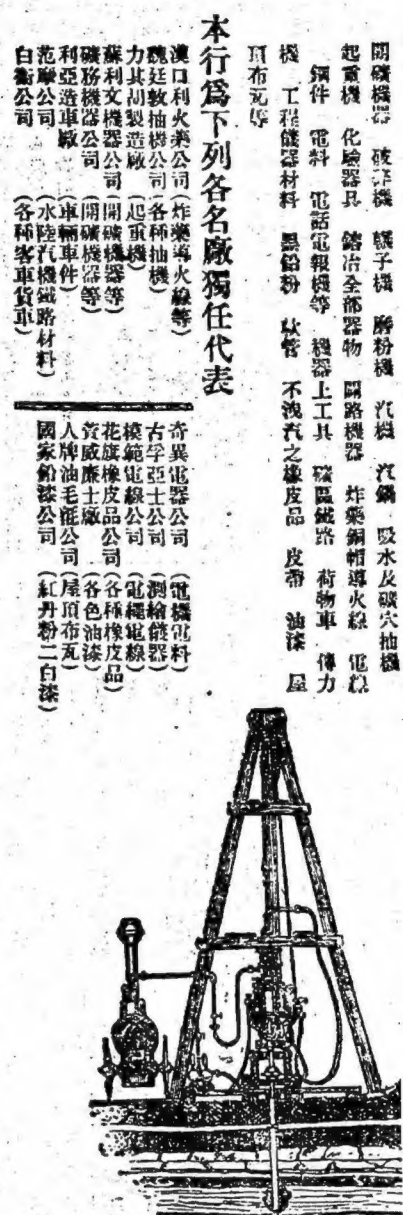 開礦機器　破碎機　輾子機　磨粉機　汽機　汽鍋　吸水及礦穴抽機
起重機　化驗器具　鎔冶全部器物　開路機器　炸藥銅帽導火線　電線
鋼件　電料　電話電報機等　機器上工具　礦區鐵路　荷物車　傳力
機　工程儀器材料　黑鉛粉　軟管　不洩汽之橡皮品　皮帶　油漆　屋
頂布瓦等
本行爲下列各名廠獨任代表
漢口利火藥公司（炸藥導火線等）
魏廷敦抽機公司（各種抽機）
力其胡製造廠（起重機）
蘇利文機器公司（開礦機器等）
礦務機器公司（開礦機器等）
利亞造車廠（車輛車件）
范聯公司（水陸汽機鐵路材料）
白衞公司（各種客車貨車）
奇異電器公司（電機電料）
古孚亞士公司（測繪儀器）
模範電線公司（電纜電線）
花旗橡皮品公司（各種橡皮品）
威廉士廠（各色油漆）
人牌油毛氈公司（屋頂布瓦）
國家鉛漆公司（紅丹粉二白漆）